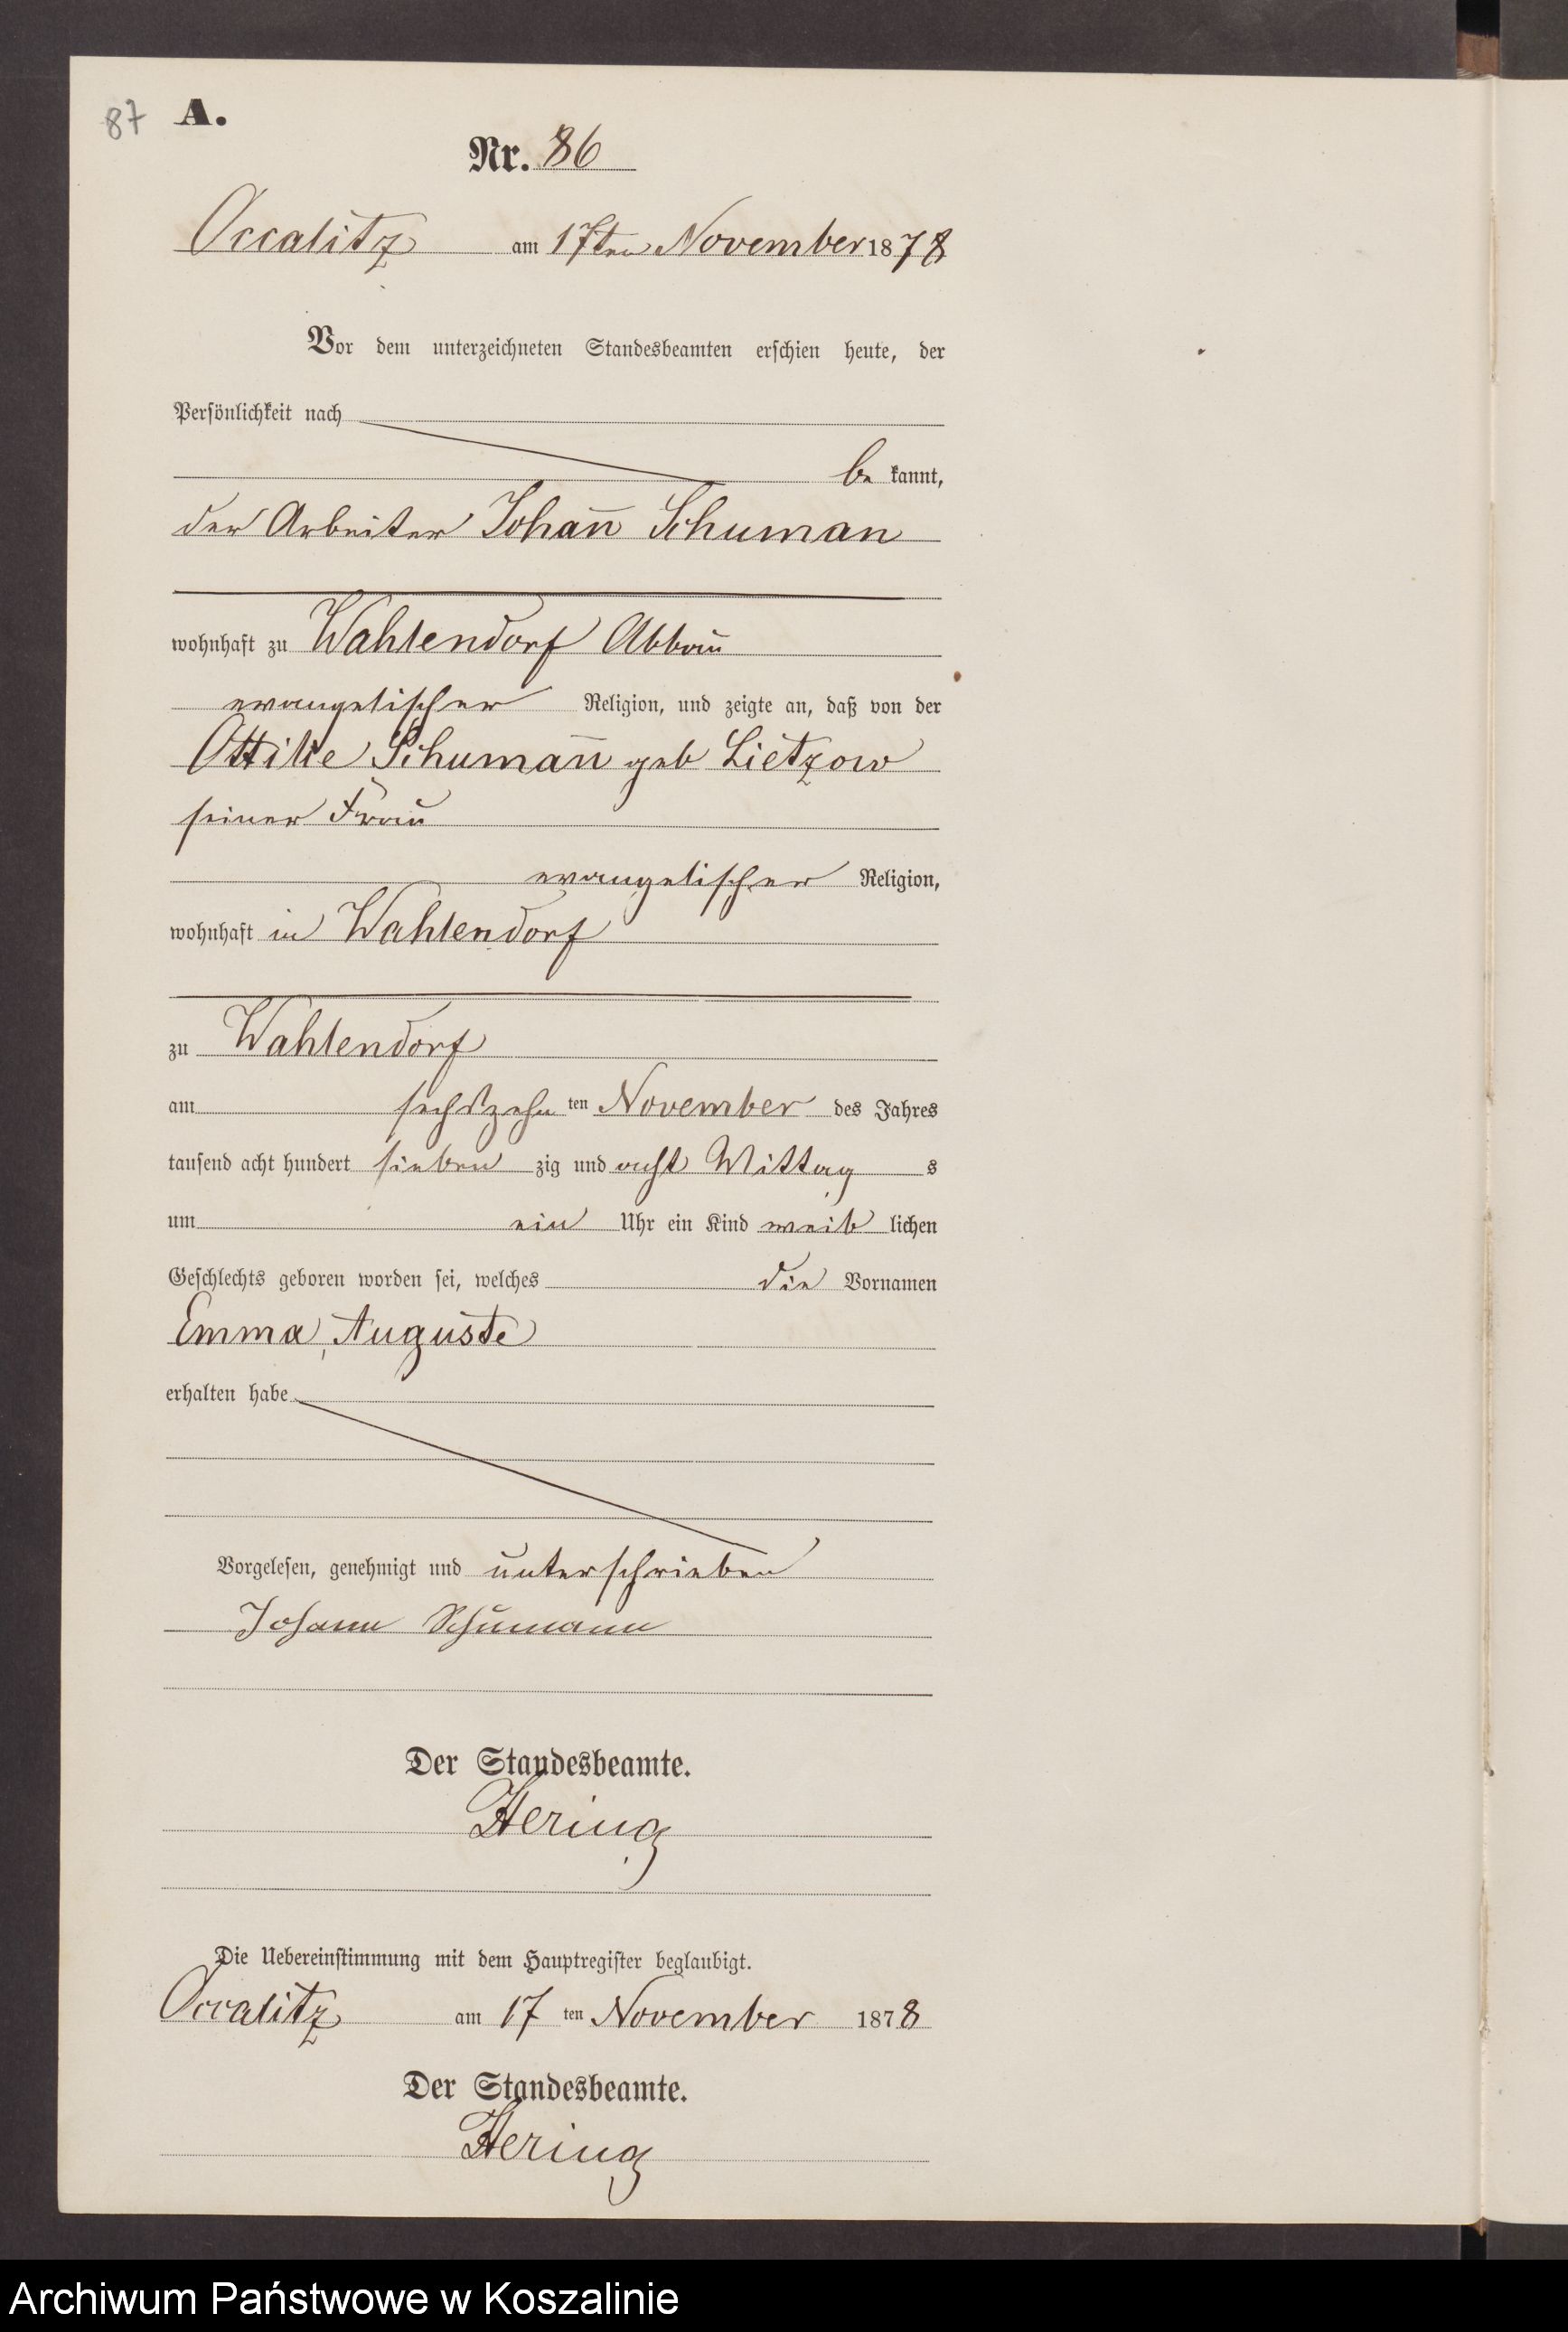 87 A.
Nr. 86
Occalitz am 17ten November 1878
Vor dem unterzeichneten Standesbeamten erschien heute, der
Persönlichkeit nach
be kannt,
der Arbeiter Johan̅ Schuman
wohnhaft zu Wahlendorf Abbau
evangelischer Religion, und zeigte an, daß von der
Ottilie Schuman̅ geb Lietzow
seiner Frau
evangelischer Religion,
wohnhaft in Wahlendorf
zu Wahlendorf
am sechszehn ten November des Jahres
tausend acht hundert sieben zig und acht Mittag s
um ein Uhr ein Kind weib lichen
Geschlechts geboren worden sei, welches die Vornamen
Emma, Auguste
erhalten habe
Vorgelesen, genehmigt und unterschrieben
Johann Schumann
Der Standesbeamte.
Hering
Die Uebereinstimmung mit dem Hauptregister beglaubigt.
Occalitz am 17 ten November 1878
Der Standesbeamte.
Hering
Archiwum Państwowe w Koszalinie